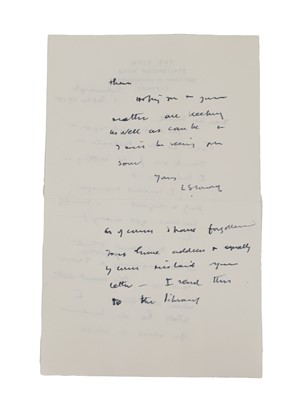 them
Hoping you & your
mother are keeping
as well as can be &
I will be seeing you
soon
Yours
As of course I have forgotten
your home address & equally
of course mislaid your
letter — I send this
to the library